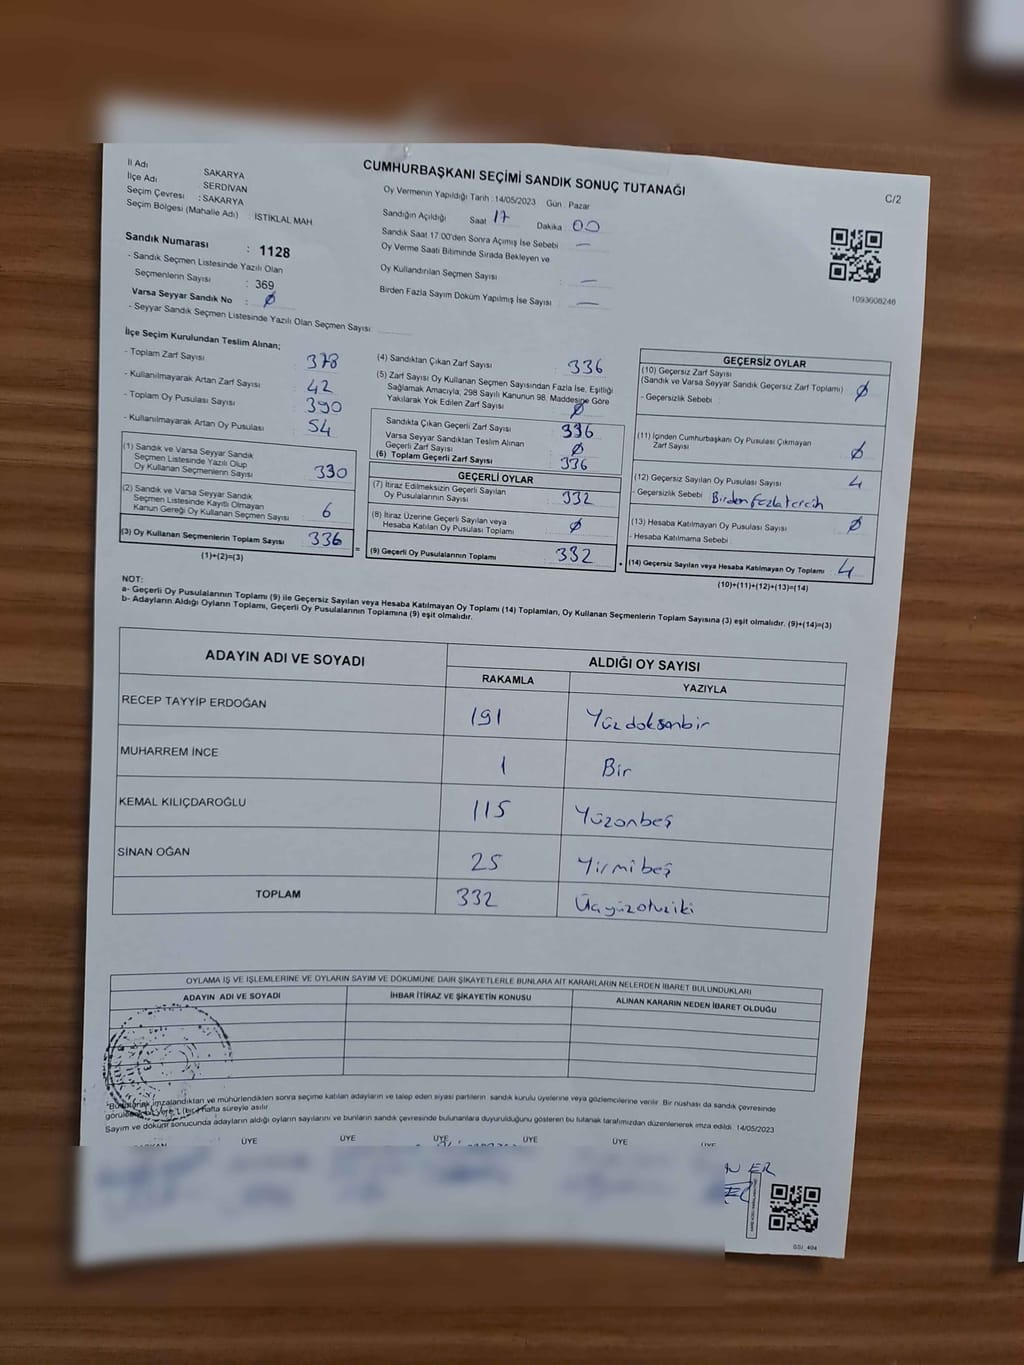 CUMHURBAŞKANI SEÇİMİ SANDIK SONUÇ TUTANAĞI
C/2
İl Adı : SAKARYA
İlçe Adı : SERDİVAN
Seçim Çevresi : SAKARYA
Seçim Bölgesi (Mahalle Adı) : İSTİKLAL MAH
Sandık Numarası : 1128
- Sandık Seçmen Listesinde Yazılı Olan
Seçmenlerin Sayısı : 369
Varsa Seyyar Sandık No : Ø
- Seyyar Sandık Seçmen Listesinde Yazılı Olan Seçmen Sayısı:
Oy Vermenin Yapıldığı Tarih :14/05/2023 Gün : Pazar
Sandığın Açıldığı Saat 17 Dakika 00
Sandık Saat 17.00'den Sonra Açımış İse Sebebi —
Oy Verme Saati Bitiminde Sırada Bekleyen ve
Oy Kullandırılan Seçmen Sayısı : —
Birden Fazla Sayım Döküm Yapılmış İse Sayısı : —
1093608246
İlçe Seçim Kurulundan Teslim Alınan;
- Toplam Zarf Sayısı : 378
- Kullanılmayarak Artan Zarf Sayısı : 42
- Toplam Oy Pusulası Sayısı : 390
- Kullanılmayarak Artan Oy Pusulası : 54
(1) Sandık ve Varsa Seyyar Sandık
Seçmen Listesinde Yazılı Olup
Oy Kullanan Seçmenlerin Sayısı : 330
(2) Sandık ve Varsa Seyyar Sandık
Seçmen Listesinde Kayıtlı Olmayan
Kanun Gereği Oy Kullanan Seçmen Sayısı : 6
(3) Oy Kullanan Seçmenlerin Toplam Sayısı : 336
(1)+(2)=(3)
(4) Sandıktan Çıkan Zarf Sayısı : 336
(5) Zarf Sayısı Oy Kullanan Seçmen Sayısından Fazla İse, Eşitliği
Sağlamak Amacıyla, 298 Sayılı Kanunun 98. Maddesine Göre
Yakılarak Yok Edilen Zarf Sayısı : Ø
Sandıkta Çıkan Geçerli Zarf Sayısı : 336
Varsa Seyyar Sandıktan Teslim Alınan
Geçerli Zarf Sayısı : Ø
(6) Toplam Geçerli Zarf Sayısı : 336
GEÇERLİ OYLAR
(7) İtiraz Edilmeksizin Geçerli Sayılan
Oy Pusulalarının Sayısı : 332
(8) İtiraz Üzerine Geçerli Sayılan veya
Hesaba Katılan Oy Pusulası Toplamı : Ø
= (9) Geçerli Oy Pusulalarının Toplamı : 332
GEÇERSİZ OYLAR
(10) Geçersiz Zarf Sayısı
(Sandık ve Varsa Seyyar Sandık Geçersiz Zarf Toplamı) : Ø
- Geçersizlik Sebebi :
(11) İçinden Cumhurbaşkanı Oy Pusulası Çıkmayan
Zarf Sayısı : Ø
(12) Geçersiz Sayılan Oy Pusulası Sayısı : 4
- Geçersizlik Sebebi : Birden fazla tercih
(13) Hesaba Katılmayan Oy Pusulası Sayısı : Ø
- Hesaba Katılmama Sebebi :
+ (14) Geçersiz Sayılan veya Hesaba Katılmayan Oy Toplamı : 4
(10)+(11)+(12)+(13)=(14)
NOT:
a- Geçerli Oy Pusulalarının Toplamı (9) ile Geçersiz Sayılan veya Hesaba Katılmayan Oy Toplamı (14) Toplamları, Oy Kullanan Seçmenlerin Toplam Sayısına (3) eşit olmalıdır. (9)+(14)=(3)
b- Adayların Aldığı Oyların Toplamı, Geçerli Oy Pusulalarının Toplamına (9) eşit olmalıdır.
ADAYIN ADI VE SOYADI ALDIĞI OY SAYISI
RAKAMLA YAZIYLA
RECEP TAYYİP ERDOĞAN 191 Yüz doksanbir
MUHARREM İNCE 1 Bir
KEMAL KILIÇDAROĞLU 115 Yüzonbeş
SİNAN OĞAN 25 Yirmibeş
TOPLAM 332 Üçyüzotuziki
OYLAMA İŞ VE İŞLEMLERİNE VE OYLARIN SAYIM VE DÖKÜMÜNE DAİR ŞİKAYETLERLE BUNLARA AİT KARARLARIN NELERDEN İBARET BULUNDUKLARI
ADAYIN ADI VE SOYADI İHBAR İTİRAZ VE ŞİKAYETİN KONUSU ALINAN KARARIN NEDEN İBARET OLDUĞU
imzalandıktan ve mühürlendikten sonra seçime katılan adayların ve talep eden siyasi partilerin sandık kurulu üyelerine veya gözlemcilerine verilir. Bir nüshası da sandık çevresinde
yere 1 (bir) hafta süreyle asılır
Sayım ve döküm sonucunda adayların aldığı oyların sayılarını ve bunların sandık çevresinde bulunanlara duyurulduğunu gösteren bu tutanak tarafımızdan düzenlenerek imza edildi. 14/05/2023
ÜYE ÜYE ÜYE ÜYE ÜYE ÜYE
ER
GSI_404